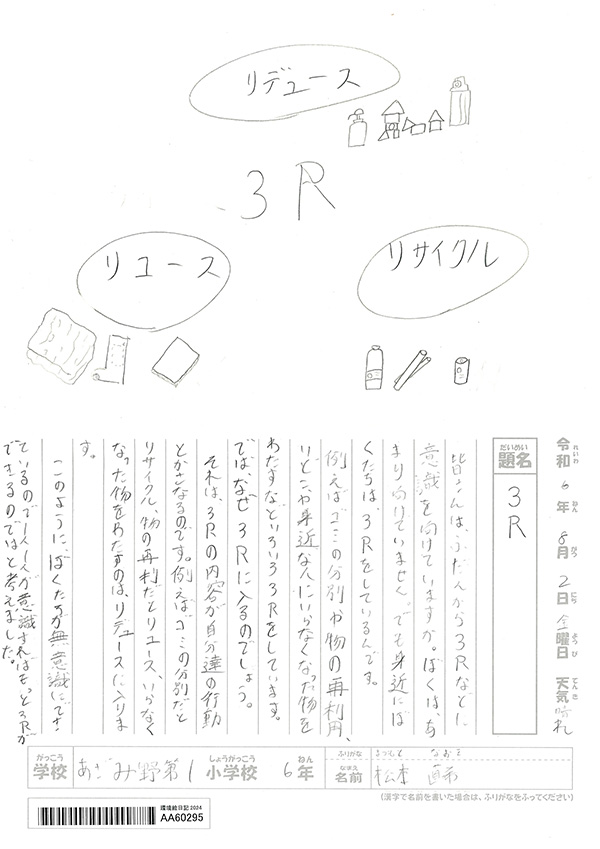 リデュース
3R
リユース
リサイクル
令和6年8月2日金曜日 天気 晴れ
れいわ ねん がつ にち ようび てんき
だいめい
題名
3R
皆さんは、ふだんから3Rなどに
意識を向けていますか。ぼくは、あ
まり向けていません。でも身近にぼ
くたちは、3Rをしているんです。
例えばゴミの分別や物の再利用、
いとこや身近な人にいらなくなった物を
わたすなどいろいろ3Rをしています。
では、なぜ3Rに入るのでしょう。
それは、3Rの内容が自分達の行動
とかさなるのです。例えばゴミの分別だと
リサイクル、物の再利だとリユース、いらなく
なった物をわたすのは、リデュースに入りま
す。
このように、ぼくたちが無意識にでき
ているので一人一人が意識すればもっと3Rが
できるのではと考えました。
がっこう しょうがっこう ねん
学校 あざみ野第1 小学校 6年
ふりがな まつもと なおき
なまえ
名前 松本
(漢字で名前を書いた場合は、ふりがなをふってください)
環境絵日記2024
AA60295